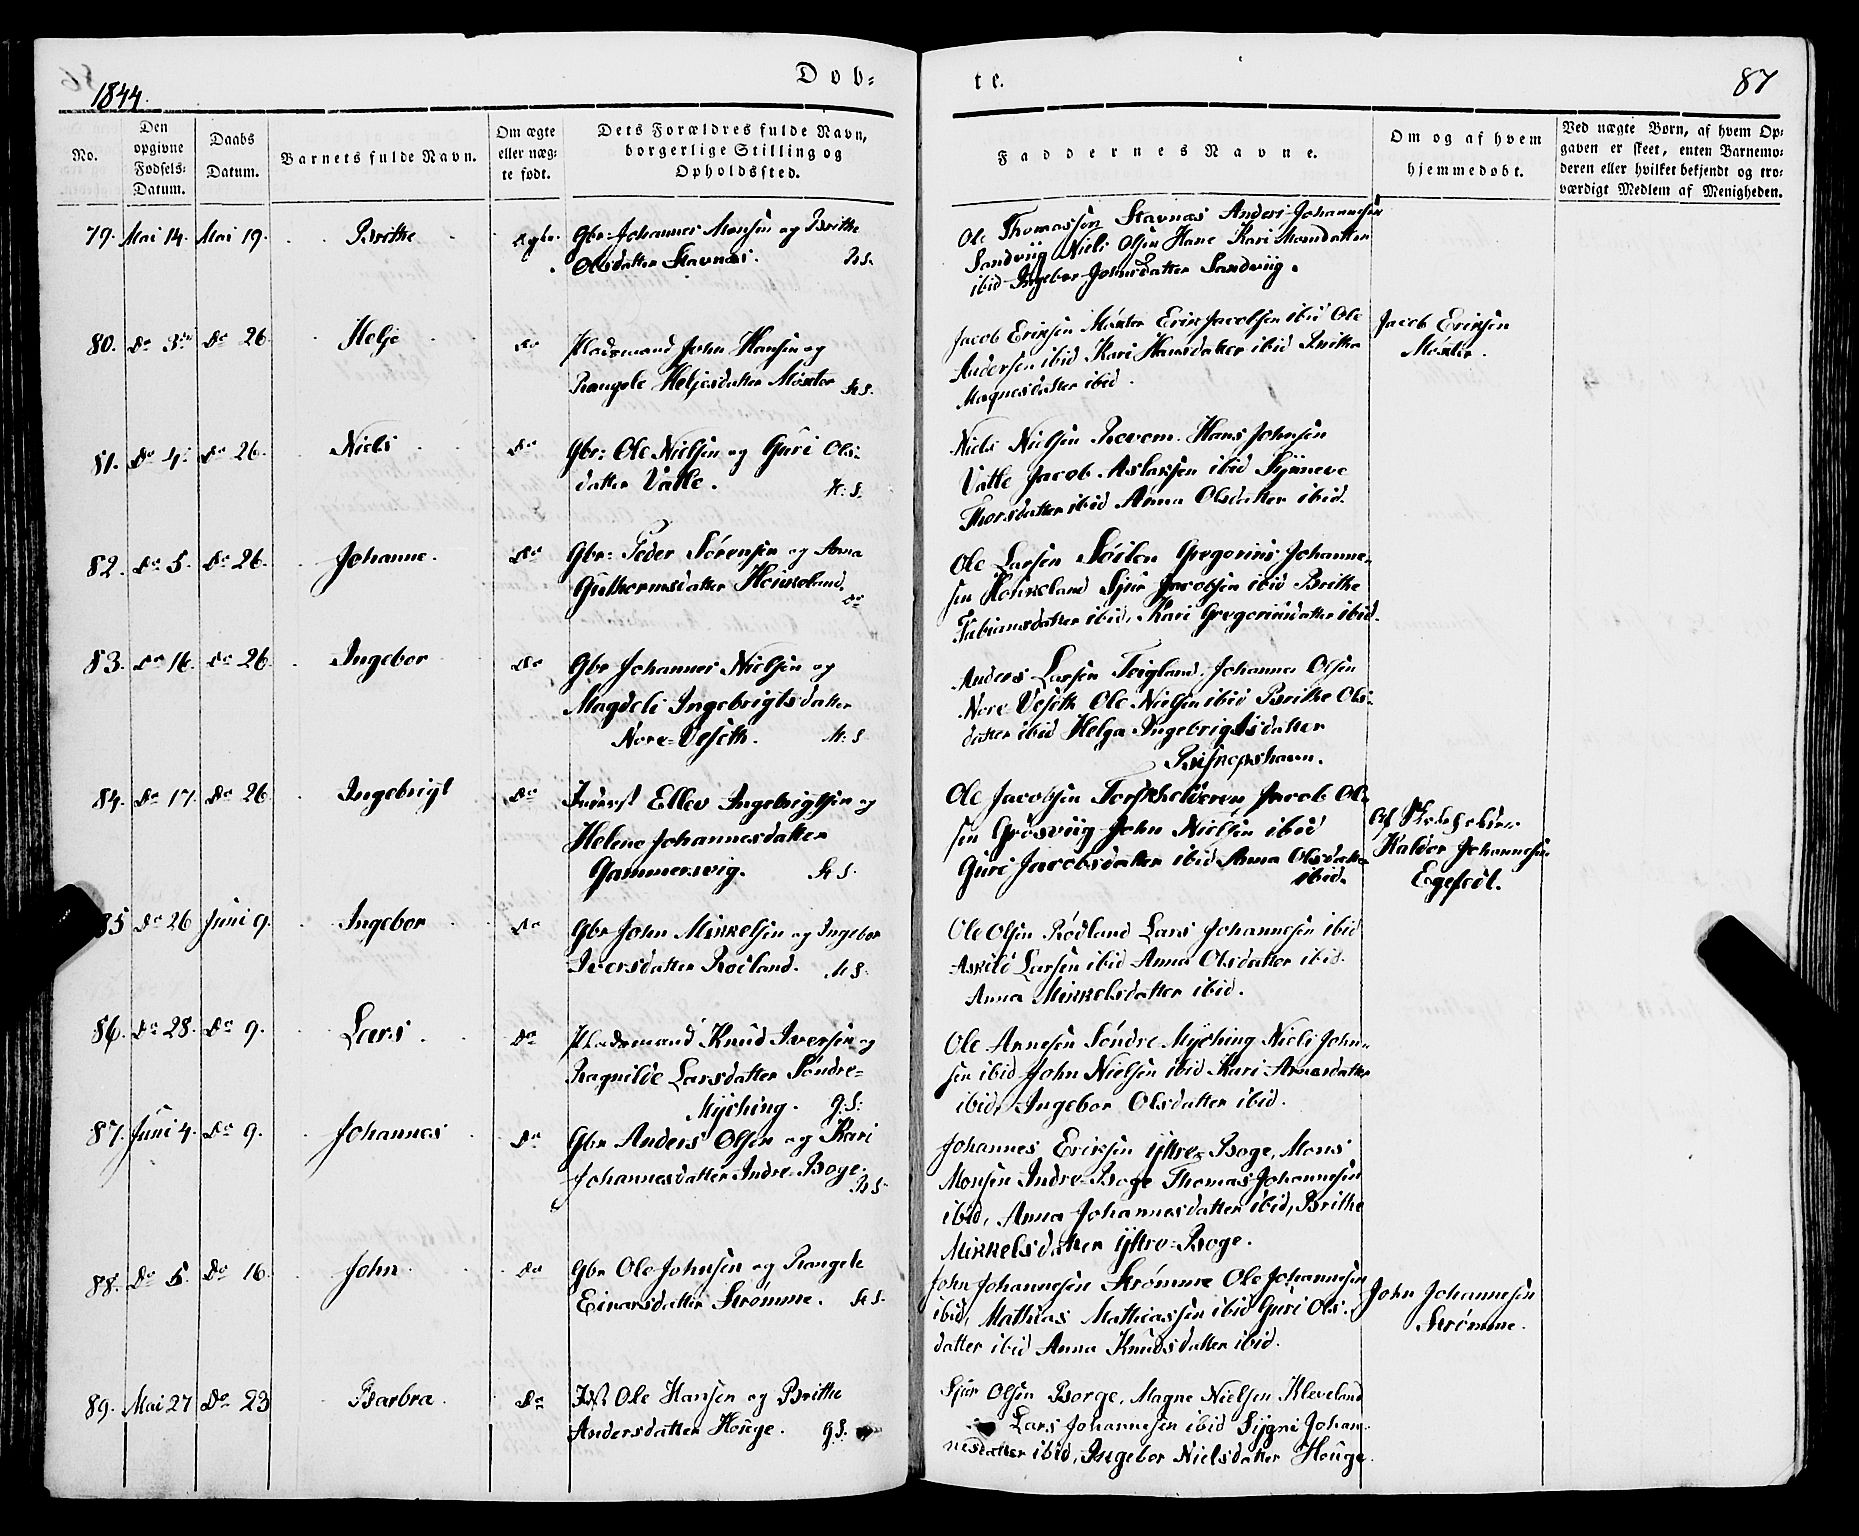 1844.
Døb-
te.
87
No.
Den opgivne Fødsels-Datum.
Daabs Datum.
Barnets fulde Navn.
Om ægte eller næg-te født.
Dets Forældres fulde Navn, borgerlige Stilling og Opholdssted.
Faddernes Navne.
Om og af hvem hjemmedøbt.
Ved uægte Børn, af hvem Op-gaven er skeet, enten Barnemo-deren eller hvilket bekjendt og tro-værdigt Medlem af Menigheden.
79. Mai 14. Mai 19. Brithe
Gbr Johannes Monsen og Brithe
Olsdatter Stavnæs.
Ole Thomassen Stavnæs Anders Johannesen
Sandviig Niels Olsen Hane Kari Monsdatter
ibid Ingebor Johnsdatter Sandviig.
80. Do Do 26 Helje Do
Pladsmand John Hansen og
Rangele Heljesdatter Møxter
Jacob Eriksen Møxter Erik Jacobsen ibid Ole
Andersen ibid Kari Hansdatter ibid Brithe
Magnesdatter ibid.
Jacob Eriksen
Møxter.
81. Do 4. Do 26. Niels Do
Gbr: Ole Nielsen og Guri Ols-
datter Vatle. H: S.
Niels Nielsen Hans Johnsen
Vatle Jacob Aslaksen ibid Synneve
Thorsdatter ibid Anna Olsdatter ibid.
82. Do 5. Do 26. Johanne. Do
Gbr: Peder Sørensen og Anna
Guthormsdatter
Ole Larsen Gregorius Johanne-
sen Sjur Jacobsen ibid Brithe
Fabiansdatter ibid, Kari Gregoriusdatter ibid.
83. Do 16. Do 26. Ingebor Do
Gbr Johannes Nielsen og
Magdeli Ingebrigtsdatter
Nore-Veseth.
Anders Larsen Teigland, Johannes Olsen
Nore Veseth Ole Nielsen ibid Brithe Ols-
datter ibid Helga Ingebrigtsdatter
Bispopshavn.
84. Do 17. Do 26. Ingebrigt Do
Inderst Ellev Ingebrigtsen og
Helene Johannesdatter
Gammersvig.
Ole Jacobsen Jacob Ol-
sen Grøsviig John Nielsen ibid
Guri Jacobsdatter ibid Anna Olsdatter
ibid.
Af
Haldor Johannesen
85 Do 26 Juni 9. Ingebor Do
Gbr John Mikkelsen og Ingebor
Iversdatter Rødland. M S.
Ole Olsen Rødland Lars Johannesen ibid
Askild Larsen ibid Anna Olsdatter ibid.
Anna Mikkelsdatter ibid.
86. Do 28. Do 9. Lars. Do
Pladsmand Knud Iversen og
Ragnilde Larsdatter Søndre-
Myching.
Ole Arnesen Søndre Myching Niels John-
sen ibid John Nielsen ibid Kari Arnesdatter
ibid, Ingebor Olsdatter ibid.
87. Juni 4. Do 9. Johannes Do
Gbr Anders Olsen og Kari
Johannesdatter Indre-Boge.
Johannes Eriksen Yttre-Boge, Mons
Monsen Indre-Boge Thomas Johannesen
ibid, Anna Johannesdatter ibid, Brithe
Mikkelsdatter Yttre-Boge.
88. Do 5. Do 16. John Do
Gbr Ole Johnsen og Rangele
Einarsdatter Strømme.
John Johannesen Strømme Ole Johannesen
ibid, Mathias Mathiassen ibid Guri Ols-
datter ibid Anna Knudsdatter ibid.
John Johannesen
Strømme.
89. Mai 27 Do 23 Barbra. Do
Ole Hansen og Brithe
Andersdatter Houge.
Sjur Olsen Borge, Magne Nielsen Kleveland
Lars Johannesen ibid Signi Johan-
nesdatter ibid, Ingebor Nielsdatter Houge.